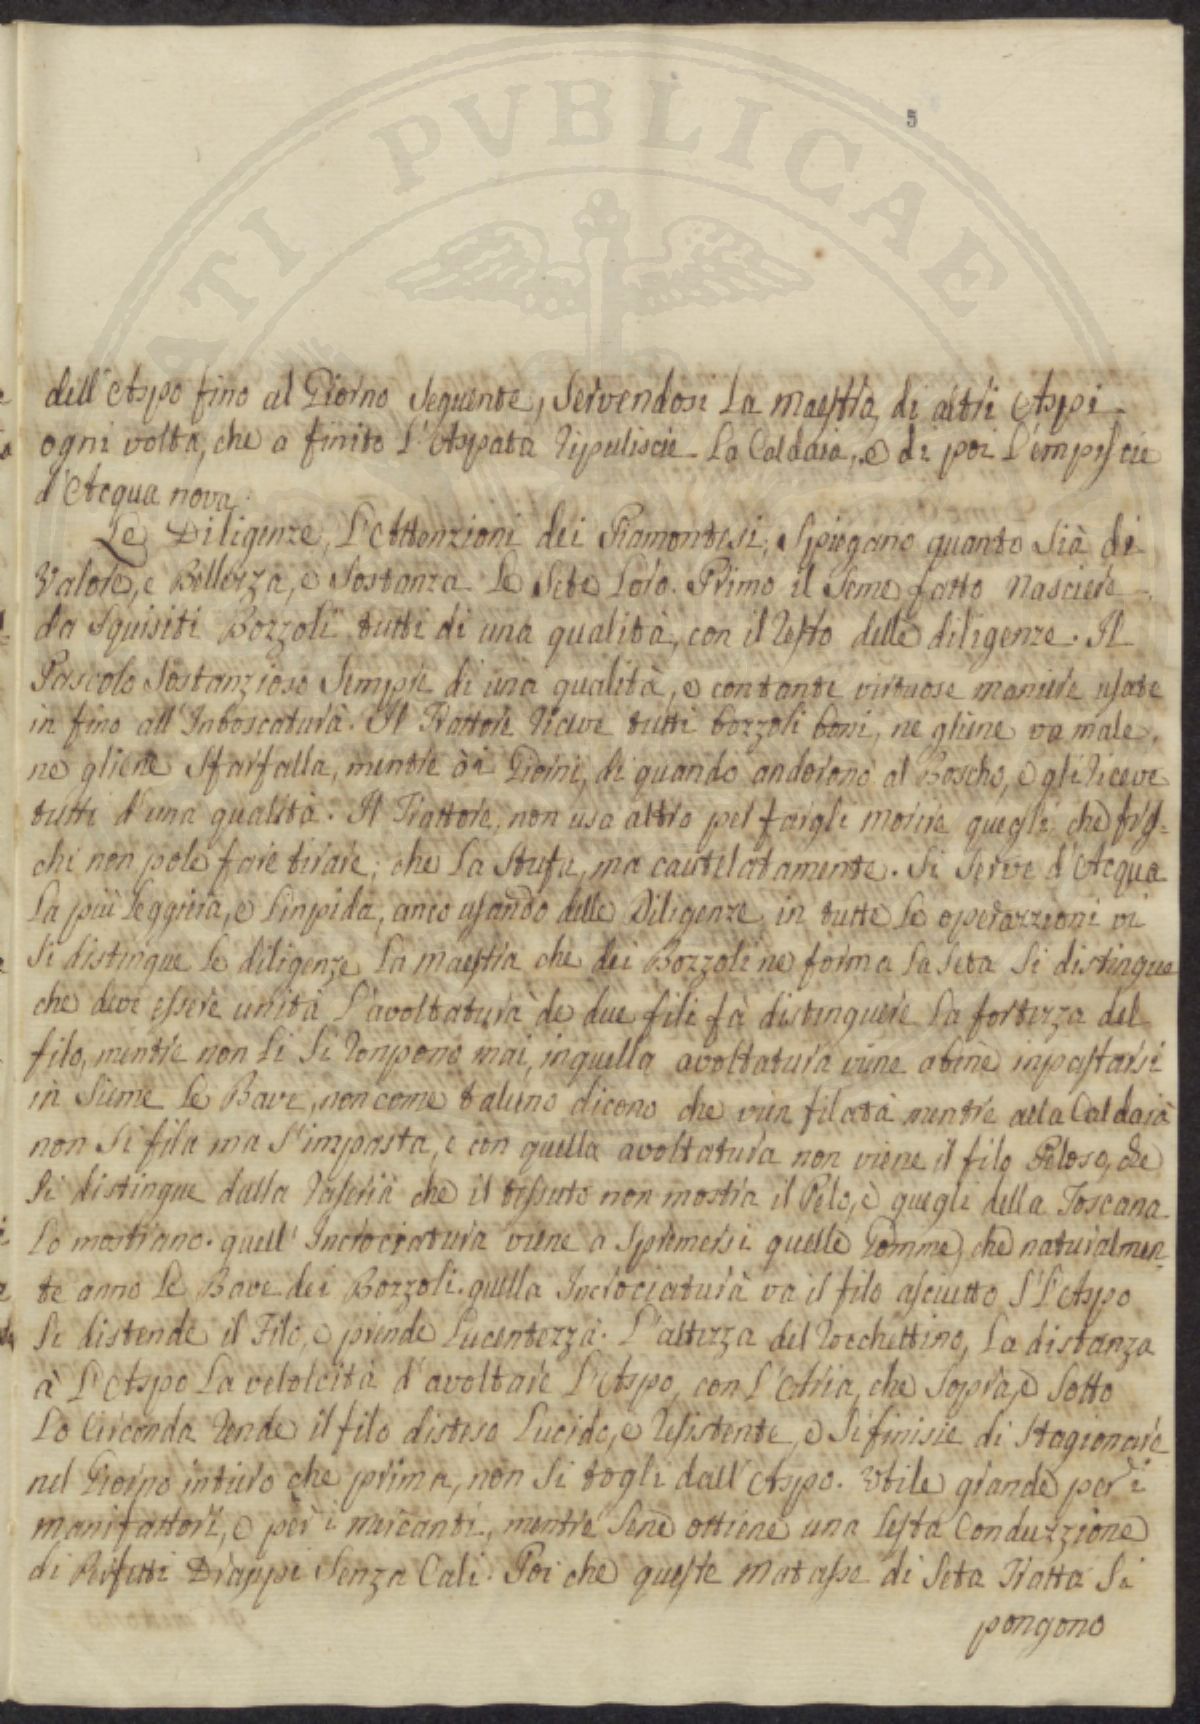 5
dell'Aspo fino al Giorno Seguente, Servendosi La maestra di altri Aspi
ogni volta, che a finito L'Aspata ripuliscie La Caldaia, e di poi L'empiscie
d'Acqua nova.
Le Diligenze, L'Attenzioni dei Piamontesi, Spiegano quanto Sià di
Valore, e Bellezza, e Sostanza Le Sete Loro. Primo il Seme fatto nasciere
da Squisiti Bozzoli tutti di una qualità, con il resto delle diligenze. Il
Pascolo Sostanzioso Sempre di una qualità, e con tante virtuose maniere usate
in fino all'Inboscatura. Il Trattore riceve tutti bozzoli boni, ne gliene va male,
ne gliene Sfarfalla, mentre à i Giorni, di quando andorono al Boscho, e gli riceve
tutti d'una qualità. Il Trattore, non usa altro per fargli morire quegli che fre-
chi non pole fare tirare; che La Stufa, ma cautelatamente. Si Serve d'Acqua
La più Leggiera, e Linpida, anco usando delle Diligenze in tutte Le operazzioni vi
Si distingue Le diligenze La maestra che dei Bozzoli ne forma La Seta Si distingue
che deve essere unita L'avoltatura de due fili fà distinguere La fortezza del
filo, mentre non Li Si ronpono mai, in quella avoltatura viene abene inpastarsi
in Sieme Le Bave, non come taluno dicono che vien filata mentre alla Caldaia
non Si fila ma S'impasta, e con quella avoltatura non viene il filo Peloso, che
Si distingue dalla raseria che il tessuto non mostra il Pelo, e quegli della Toscana
Lo mostrano. quell'Incrociatura viene a Spremersi quelle Gomme, che naturalmen-
te anno Le Bave dei Bozzoli. quella Incrociatura va il filo asciutto S L'Aspo
Si distende il Filo, e prende Lucentezza. L'altezza del rocchettino, La distanza
à L'Aspo La velolcità d'avoltare L'Aspo, con L'Aria, che Sopra, e Sotto
Lo Circonda rende il filo disteso Lucido, e resistente, e Si finisie di Stagionare
nel Giorno intiero che prima, non Si togli dall'Aspo. Utile grande per i
manifattori, e per i mercanti, mentre Sene ottiene una Conduzzione
di Drappi Senza Cali. Poi che queste matasse di Seta Tratta Si
pongono